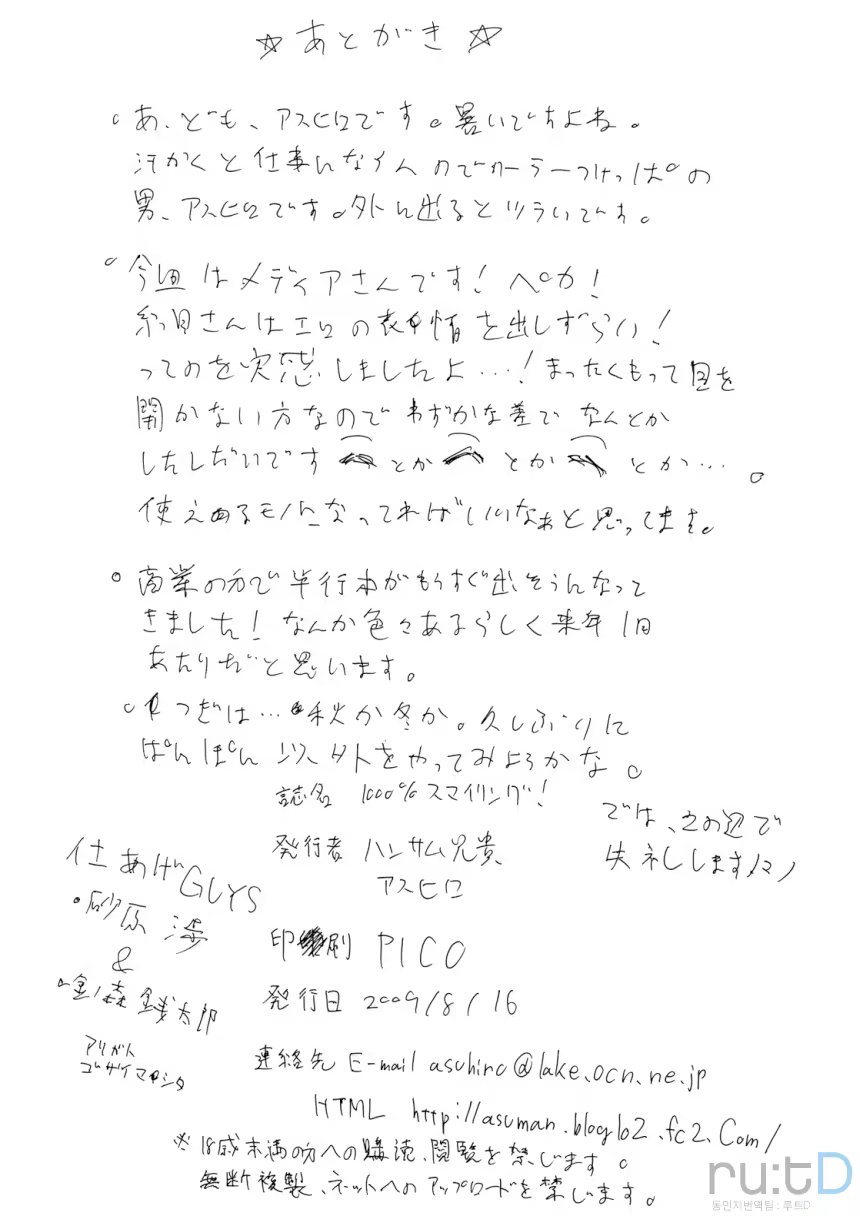 ☆あとがき☆
。あ、ども、アスヒロです。暑いですよね。
汗かくと仕事になんないのでクーラーつけっぱの
男、アスヒロです。外に出るとツラいです。
。今回はメディアさんです!ペカ!
糸目さんはエロの表情を出しずらい!
ってのを実感しましたよ…!まったくもって目を
開かない方なのでわずかな差でなんとか
したしだいです とか とか とか…。
使えるモノになってればいいなぁと思ってます。
。商業の方で単行本がもうすぐ出そうになって
きました!なんか色々あるらしく来年1月
あたりだと思います。
。つぎは…秋か冬か。久しぶりに
ぱんぽん以外をやってみようかな。
では、この辺で
失礼します
誌名 1000%スマイリング!
発行者 ハンサム兄貴
アスヒロ
印刷 PICO
発行日 2009/8/16
連絡先 E-mail asuhiro@lake.ocn.ne.jp
HTML http://asuman.blog102.fc2.com/
※18歳未満の方への購読、閲覧を禁じます。
無断複製、ネットへのアップロードを禁じます。
仕あげGUYS
・砂原 渉
&
・金ノ森 銭太郎
アリガト
ゴザイマシタ
ru:tD
동인지번역팀 : 루트D